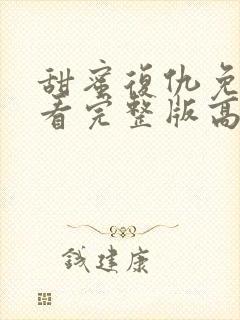 甜蜜復仇免
看完整版高
钱建康